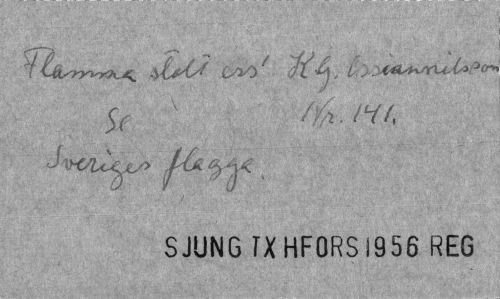 Flamma stolt ess' K.G. Ossiannilsson
Se Nr. 141.
Sveriges flagga.
SJUNG TX HFORS 1956 REG